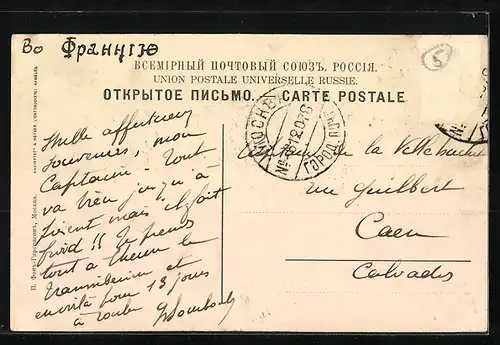 Во Францію
5
ВСЕМІРНЫЙ ПОЧТОВЫЙ СОЮЗЪ. РОССІЯ.
UNION POSTALE UNIVERSELLE RUSSIE.
ОТКРЫТОЕ ПИСЬМО. — CARTE POSTALE
МОСКВА
ГОРОД
Mille affectueux
souvenirs, mon
Capitaine. Tout
va bien jusqu'à
présent mais il fait
froid !! Je prends
tout à l'heure le
transsibérien et
en voilà pour 13 jours
à rouler
Capitaine de la
rue Guilbert
Caen
Calvados
П. Фонъ-Гиргенсонъ, Москва.